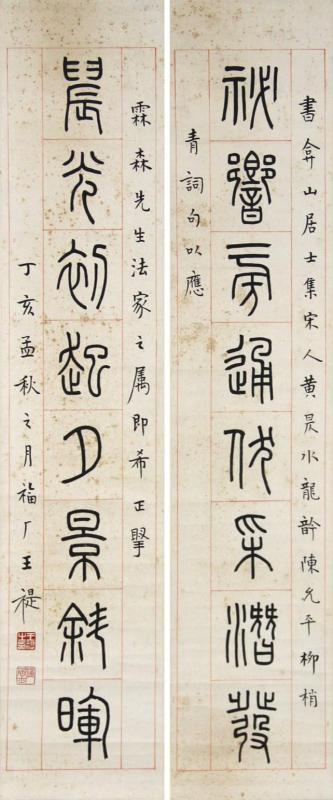 書弇山居士集宋人黃昃水龍 陳允平柳梢
祕響旁通伏采潛發
青詞句以應
霖森先生法家之属即希正
晨光初起夕景斜暉
丁亥孟秋之月福厂王禔